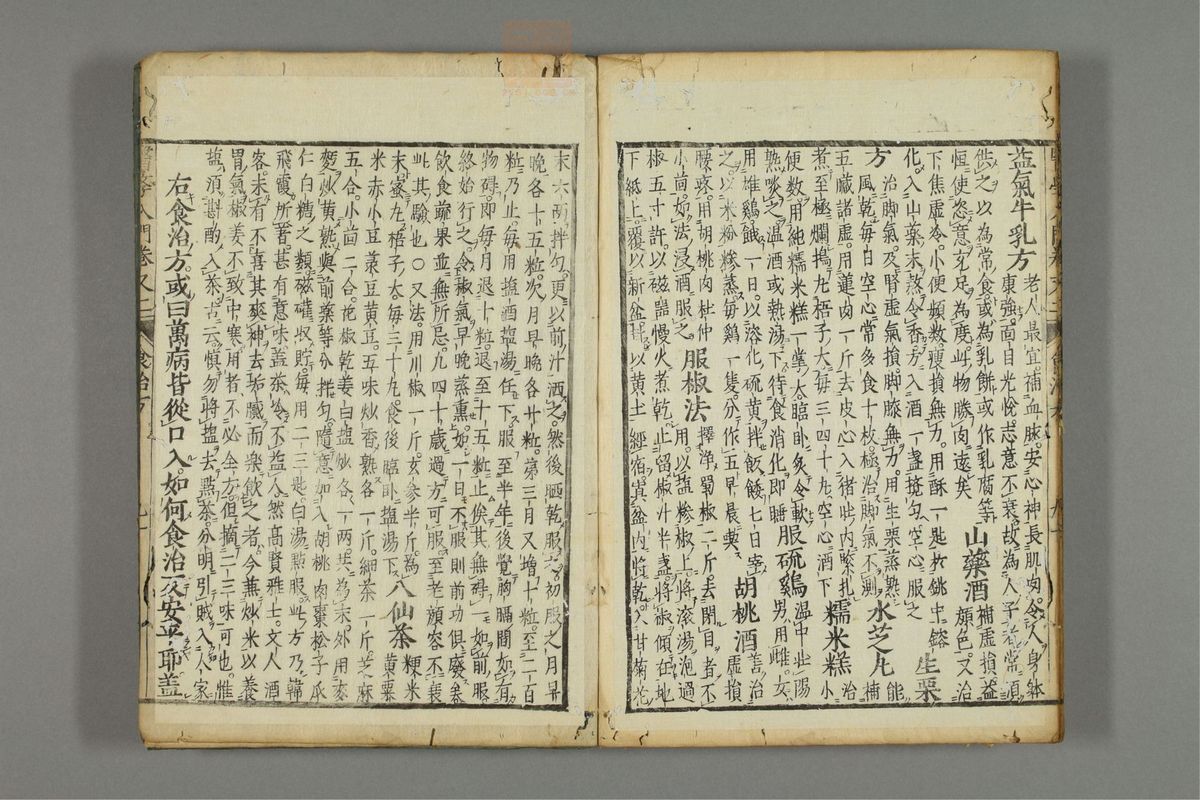 益氣牛乳方
老人最宜補血脉安心神長肌肉令人身体
康強面目光悅志意不衰故為人子者常須
供之以為常食或為乳餅或作乳腐等
恒使恣意充足為度此物勝肉遠矣
山藥酒
補虛損益
顏色又治
下焦虛冷小便頻數瘦損無力用酥一匙於銚中鎔
化入山藥末蒸令香方入酒一盞攪勻空心服之
生栗
方
治脚氣及腎虛氣損脚膝無力用生栗蒸熟
風乾每日空心常多食十枚極治脚氣不測
水芝丸
能
補
五臟諸虛用蓮肉一斤去皮心入猪肚內緊扎
煮至極爛搗丸梧子大每三四十丸空心酒下
糯米糕
治
小
便数用純糯米糕一掌大臨臥炙令軟
熟啖之温酒或熱湯下待食消化即睡
服硫鷄
温中壯陽
男用雌女
用雄鷄餓一日以溶化硫黄拌飯餧七日宰
之以米粉糝蒸每鷄一隻分作五早晨喫
胡桃酒
善治
虛損
腰疼用胡桃肉杜仲
小茴如法浸酒服之
服椒法
擇淨蜀椒二斤去閉目者不
用以盐糝椒上將滾湯泡過
椒五寸許以磁器慢火煮乾止留椒汁半盞將椒傾在地
下紙上覆以新盆封以黄土經宿置盆内將乾入甘菊花
末六兩拌勻更以前汁洒之然後晒乾服之初服之月早
晚各十五粒次月早晚各廿粒第三月又增十粒至二百
粒乃止每用塩酒塩湯任下服至半年後覺胸膈間如有
物碍即每月退十粒退至十五粒止俟其無碍一如前服
終始行之令椒氣早晚蒸熏如一日不服則前功俱廢矣
飲食蔬果並無所忌凡四十歲過方可服至老顏容不衰
此其驗也○又法用川椒一斤玄参半斤為
末蜜丸梧子大每三十丸食後臨臥塩湯下
八仙茶
粳米
黄粟
米赤小豆菉豆黄豆五味炒香熟各一斤細茶一斤芝麻
五合小茴二合花椒乾姜白塩炒各一兩共為末外用麥
麪炒黄熟與前藥等分拌勻隨意加入胡桃肉棗松子瓜
仁白糖之類磁礶收貯每用二三匙白湯點服此方乃韓
飛霞所著甚有意味盖茶冷不益人然高賢雅士文人酒
客未有不喜其爽神去垢膩而樂飲之者今兼炒米以養
胃氣椒姜不致中寒用者不必全方但摘二三味可也惟
塩須斟酌入茶古云慎勿將塩去點茶分明引賊入人家
右食治方或曰萬病皆從口入如何食治反安平耶盖